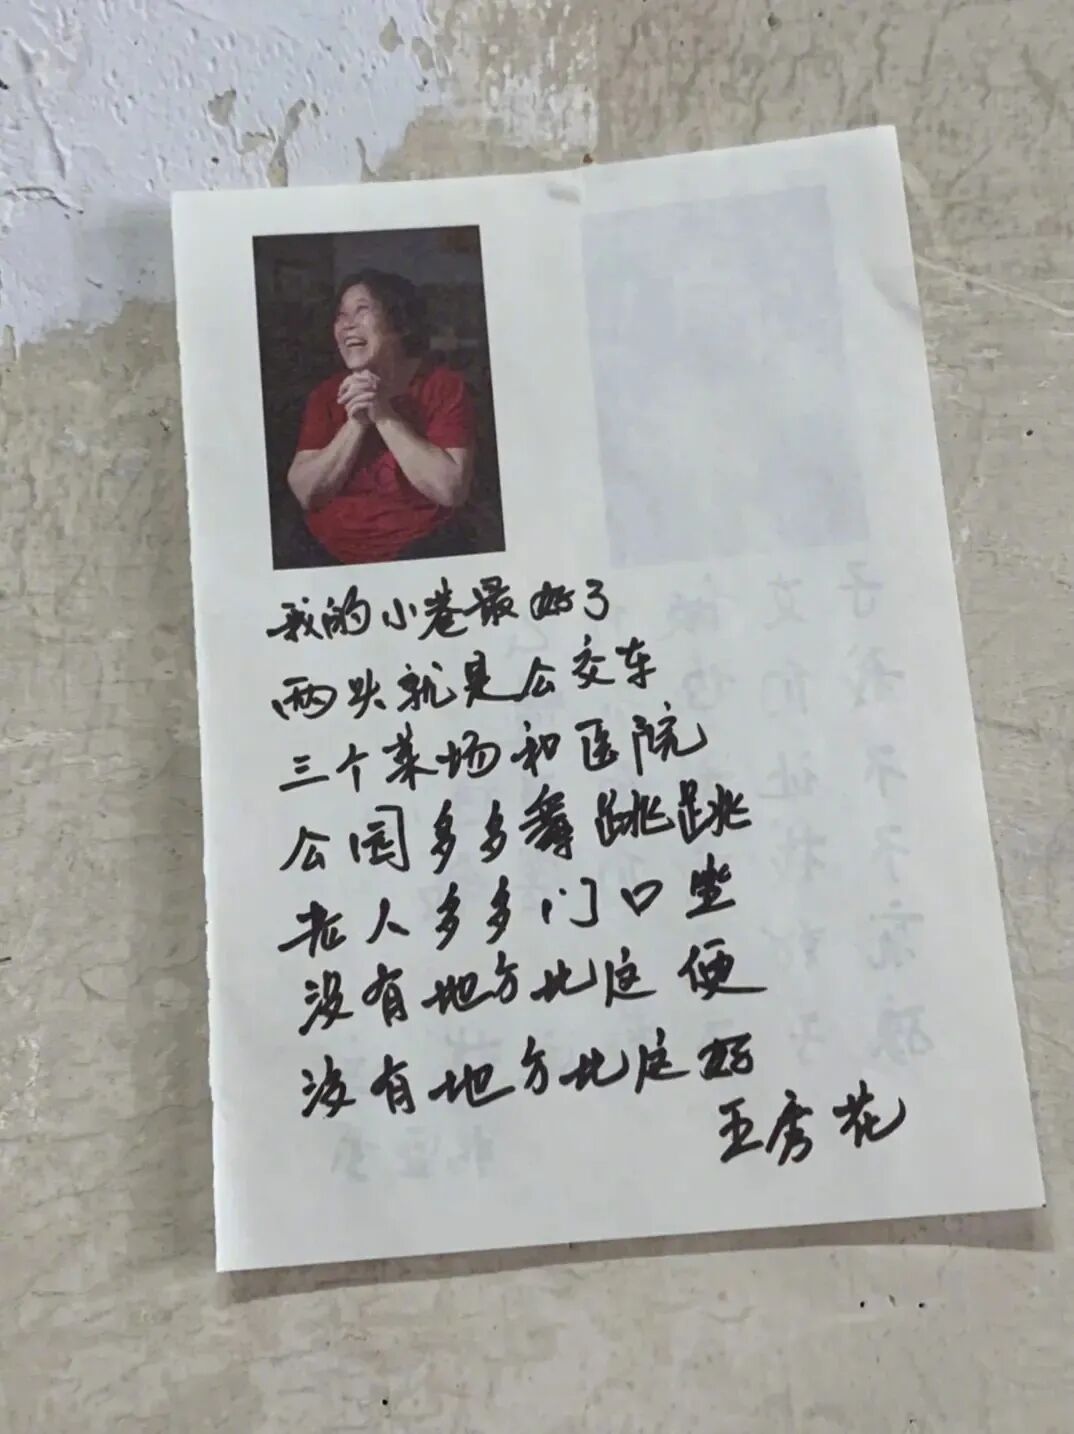 我的小巷最好了
两头就是公交车
三个菜场和医院
公园多多舞跳跳
老人多多门口坐
没有地方比这便
没有地方比这好
王秀花